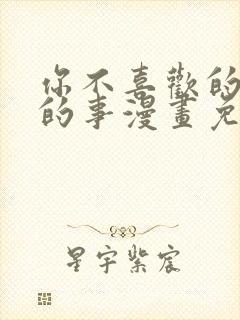 你不喜歡的
的事漫畫免
星宇紫宸